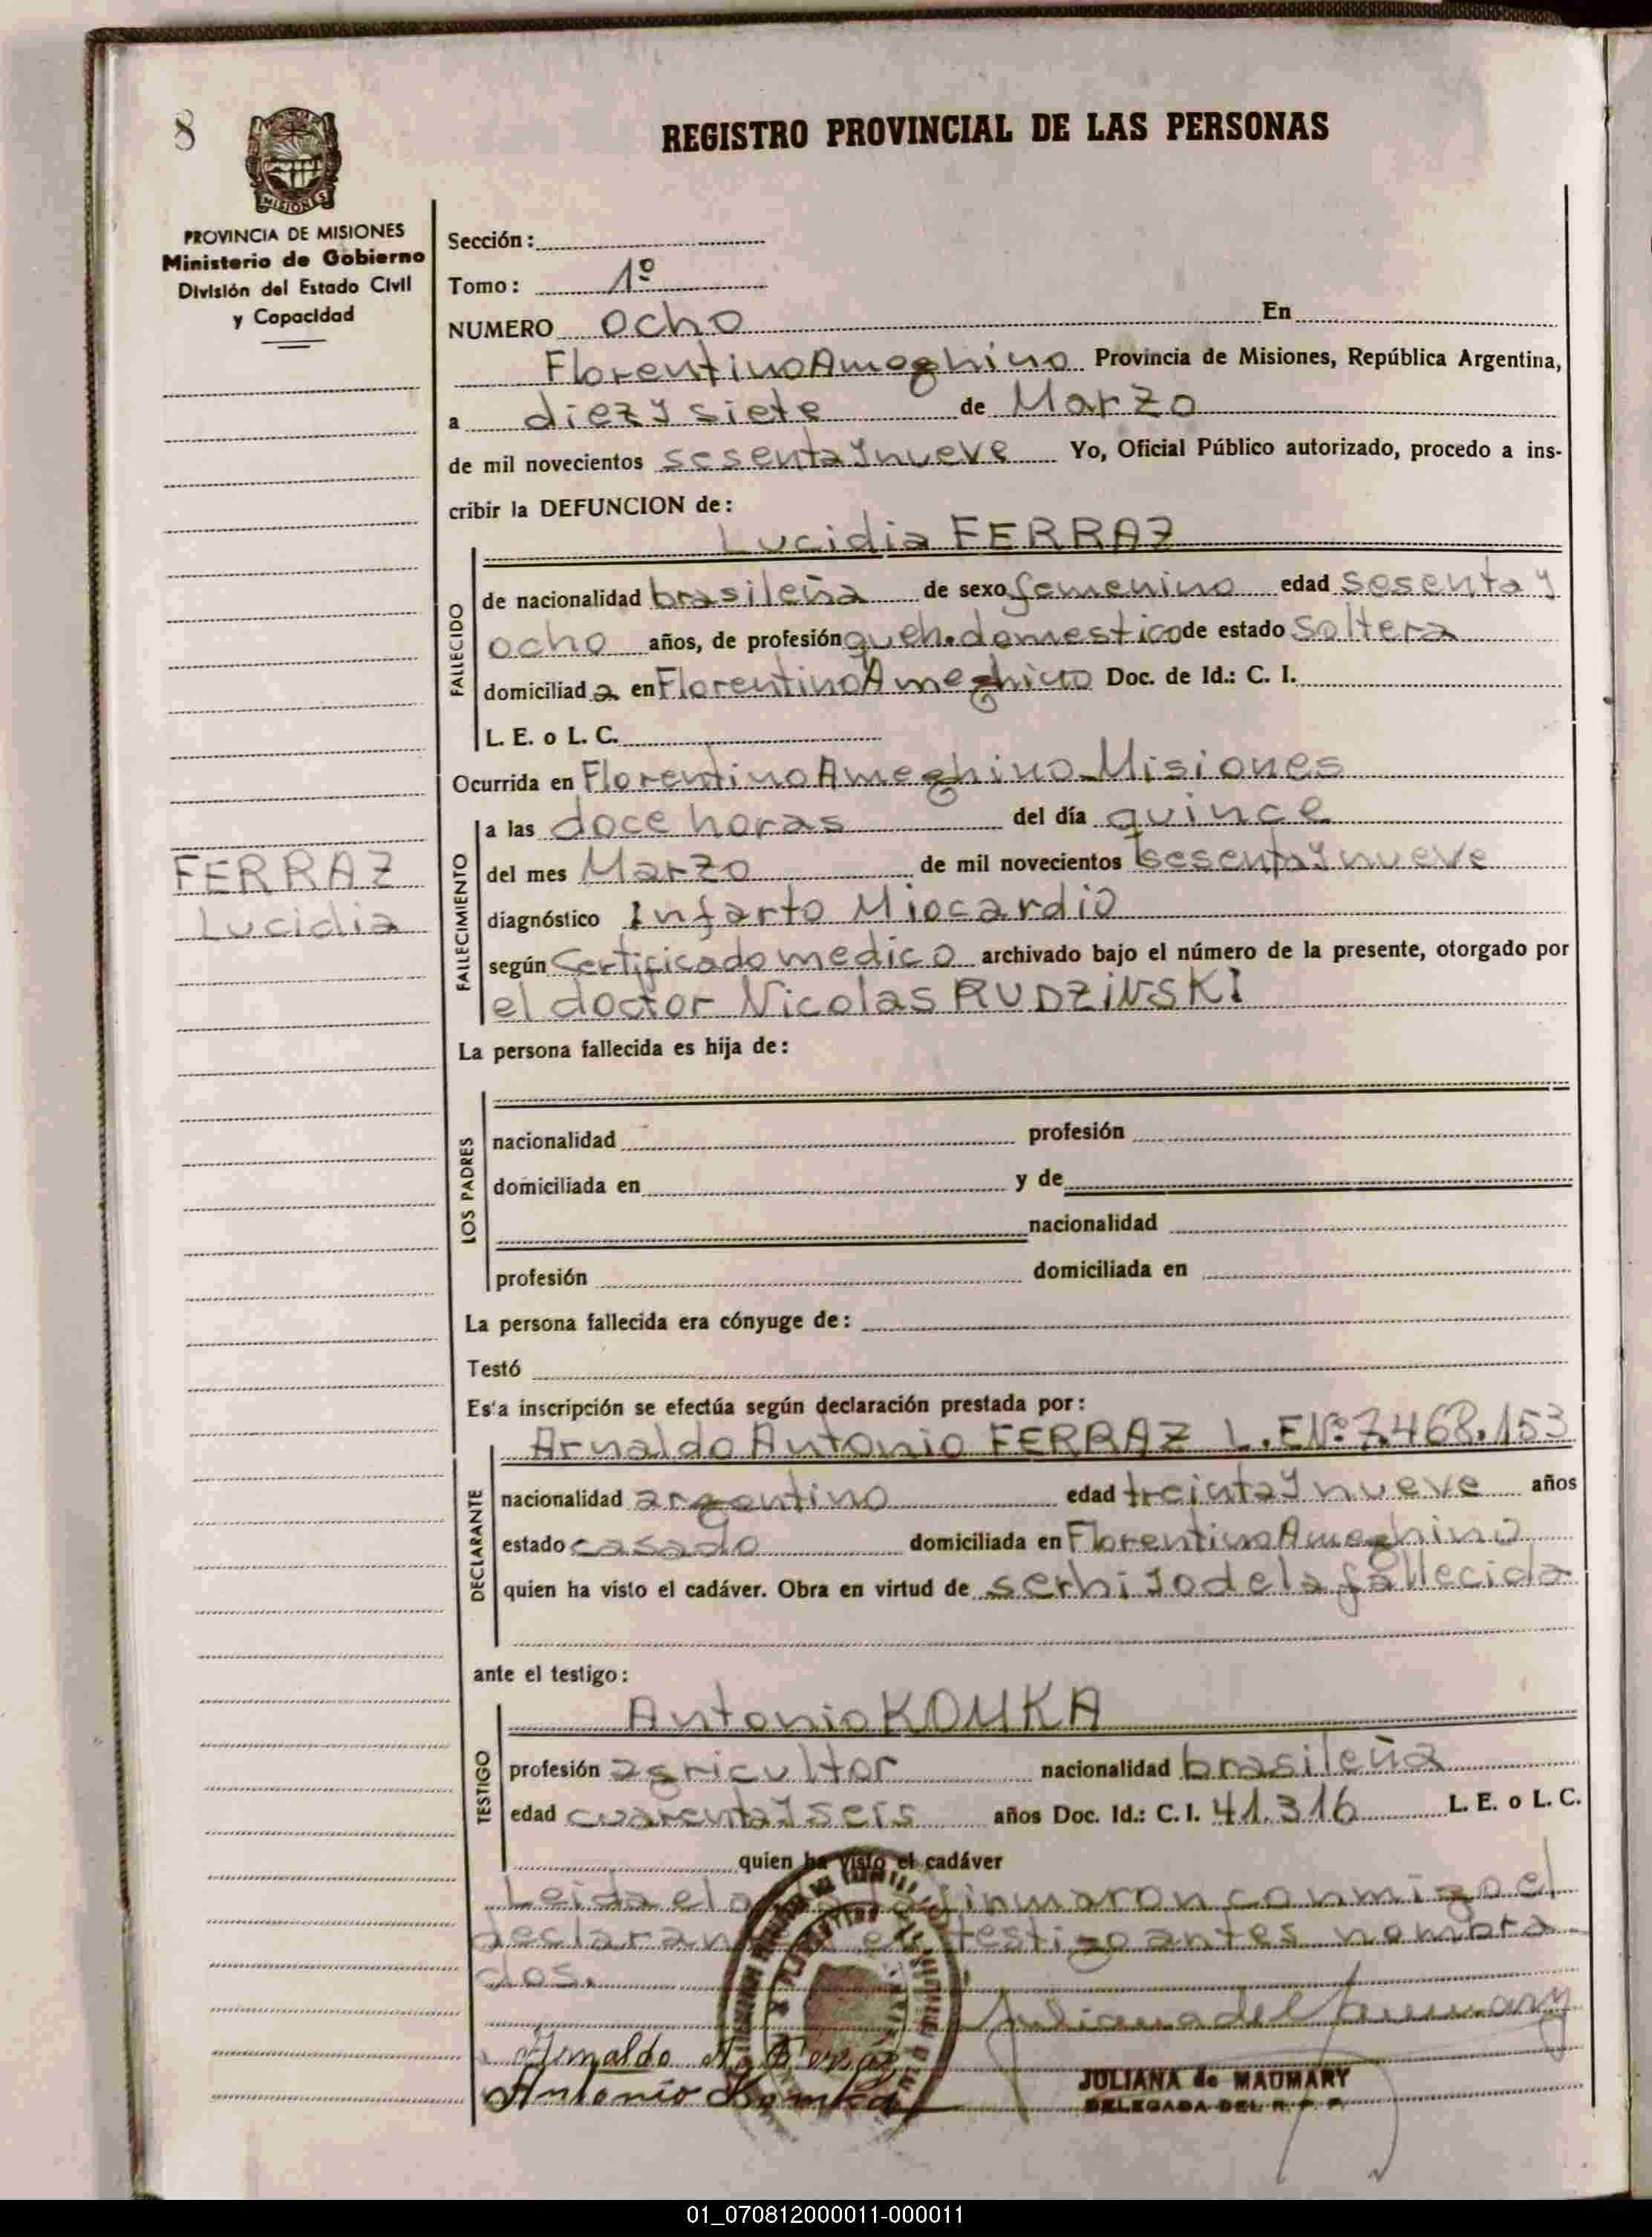 8
MISIONES
REGISTRO PROVINCIAL DE LAS PERSONAS
PROVINCIA DE MISIONES
Ministerio de Gobierno
División del Estado Civil
y Capacidad
Sección:
Tomo: 1º
NUMERO ocho En
Florentino Ameghino Provincia de Misiones, República Argentina,
a diez y siete de Marzo
de mil novecientos sesenta y nueve Yo, Oficial Público autorizado, procedo a ins-
cribir la DEFUNCION de:
Lucidia FERRAZ
FALLECIDO
de nacionalidad brasileña de sexo femenino edad sesenta y
ocho años, de profesión queh. domestico de estado soltera
domiciliad a en Florentino Ameghino Doc. de Id.: C. I.
L. E. o L. C.
Ocurrida en Florentino Ameghino Misiones
FALLECIMIENTO
a las doce horas del día quince
del mes Marzo de mil novecientos sesenta y nueve
FERRAZ
Lucidia
diagnóstico Infarto Miocardio
según Certificado medico archivado bajo el número de la presente, otorgado por
el doctor Nicolas RUDZINSKI
La persona fallecida es hija de:
LOS PADRES
nacionalidad profesión
domiciliada en y de
nacionalidad
profesión domiciliada en
La persona fallecida era cónyuge de:
Testó
Es'a inscripción se efectúa según declaración prestada por:
Arnaldo Antonio FERRAZ L.E Nº 7.468.153
DECLARANTE
nacionalidad argentino edad treinta y nueve años
estado casado domiciliada en Florentino Ameghino
quien ha visto el cadáver. Obra en virtud de ser hijo de la fallecida
ante el testigo:
Antonio KOMKA
TESTIGO
profesión agricultor nacionalidad brasileña
edad cuarenta y seis años Doc. Id.: C. I. 41.316 L. E. o L. C.
quien ha visto el cadáver
Leida el finmaron conmigo el
el testigo antes nombra
dos.
Arnaldo A.
Antonio Komka
JULIANA de MAUMARY
DELEGADA DEL R. P. P.
01_070812000011-000011